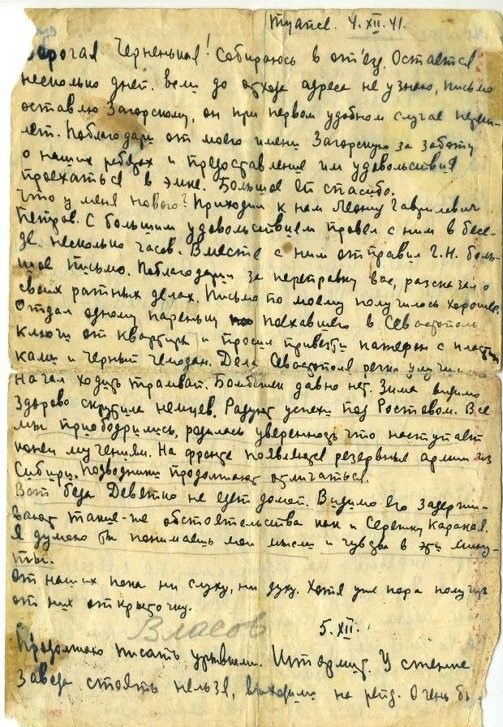 Туапсе. 4.XII.41.
Дорогая Черненькая! Собираюсь в от'езд. Остается
несколько дней. Если до отхода адреса не узнаю, письмо
оставлю Загорскому, он при первом удобном случае переш-
лет. Поблагодари от моего имени Загорскую за заботу
о наших ребятах и предоставление им удовольствия
проехаться в эмке. Большое ей спасибо.
Что у меня нового? Приходил к нам Леонид Гаврилович
Петров. С большим удовольствием провел с ним в бесе-
де несколько часов. Вместе с ним отправил Г.Н. боль-
шое письмо. Поблагодарил за переправку вас, рассказал о
своих ратных делах. Письмо по моему получилось хорошее.
Отдал одному пареньку поехавшего в Севастополь
ключи от квартиры и просил привезти патефон с пластин
ками и черный чемодан. Дела Севастополя резко улучши
Начал ходить трамвай. Бомбежек давно нет. Зима видимо
здорово скрутила немцев. Радуют успехи под Ростовом. Все
мы приободрились, родилась уверенность что наступает
конец мучениям. На фронте появляются резервные армии из
Сибири. Подводники продолжают отличаться.
Вот беда Девятко не едет домой. Видимо его задержи-
вают такие-же обстоятельства как и Сережку
Я думаю ты понимаешь мои мысли и чувства в эти мину-
ты.
От наших пока ни слуху, ни духу. Хотя уже пора получить
от них открыточку.
Власов
5.XII.
Продолжаю писать урывками. Штормит. У стенке
завода стоять нельзя, выходим на рейд. Очень бы